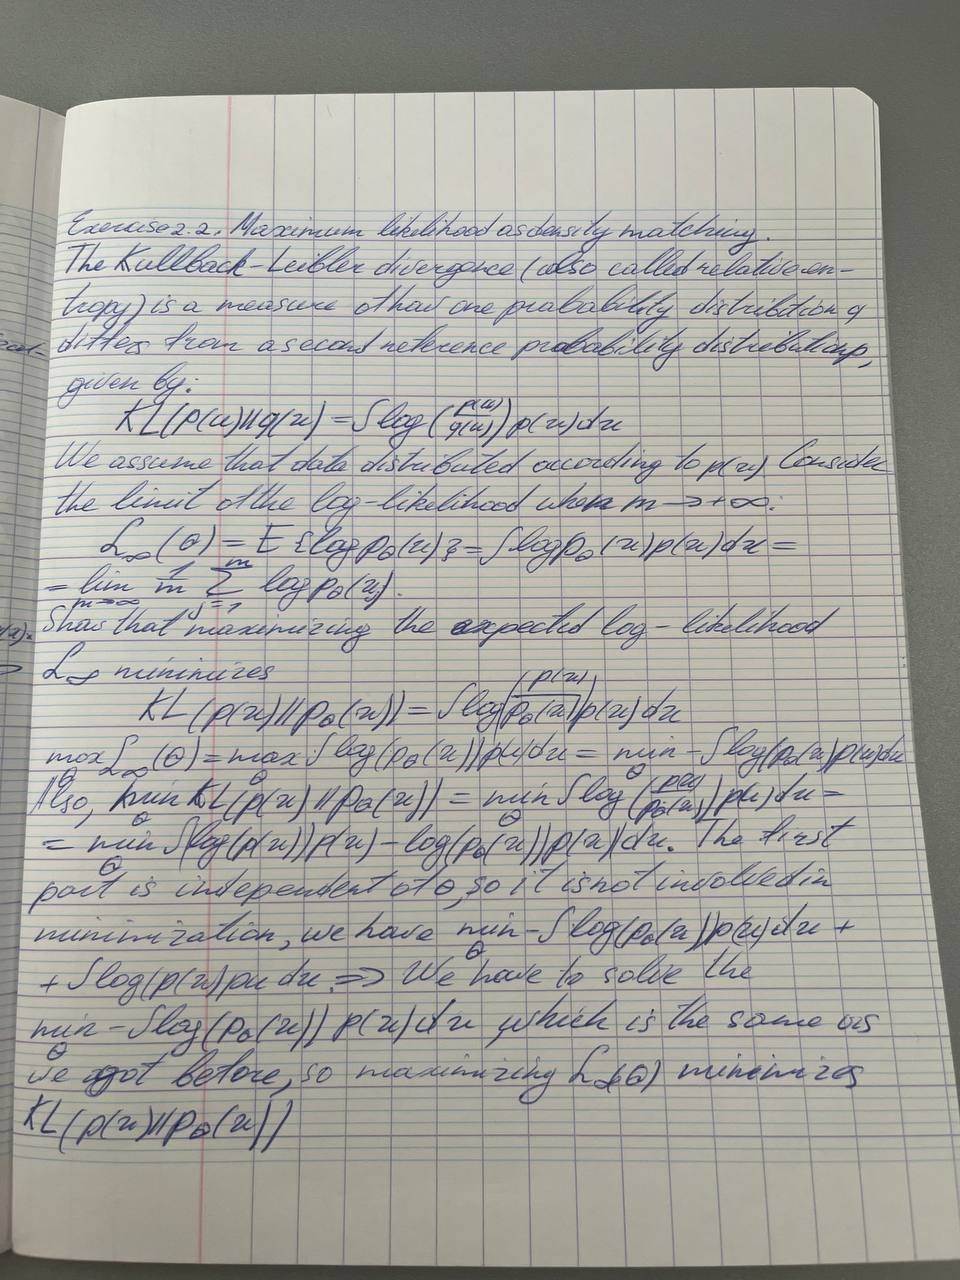 Exercise 2.2. Maximum likelihood as density matching.
The Kullback-Leibler divergence (also called relative en-
tropy) is a measure of how one probability distribution q
differs from a second reference probability distribution p,
given by:
KL(p(x)||q(x)) = ∫log(p(x)/q(x))p(x)dx
We assume that data distributed according to p(x) Consider
the limit of the log-likelihood when m → +∞:
L∞(θ) = E{log pθ(x)} = ∫log pθ(x)p(x)dx =
= lim m→∞ 1/m Σ j=1 m log pθ(xj).
Show that maximizing the expected log-likelihood
L∞ minimizes
KL(p(x)||pθ(x)) = ∫log(p(x)/pθ(x))p(x)dx
max θ L∞(θ) = max θ ∫log(pθ(x))p(x)dx = min θ -∫log(pθ(x)p(x)dx
Also, min θ KL(p(x)||pθ(x)) = min θ ∫log(p(x)/pθ(x))p(x)dx =
= min θ ∫(log(p(x))p(x) - log(pθ(x))p(x))dx. The first
part is independent of θ, so it is not involved in
minimization, we have min θ -∫log(pθ(x))p(x)dx +
+ ∫log(p(x)p(x)dx. ⇒ We have to solve the
min θ -∫log(pθ(x))p(x)dx which is the same as
we got before, so maximizing L∞(θ) minimizes
KL(p(x)||pθ(x))